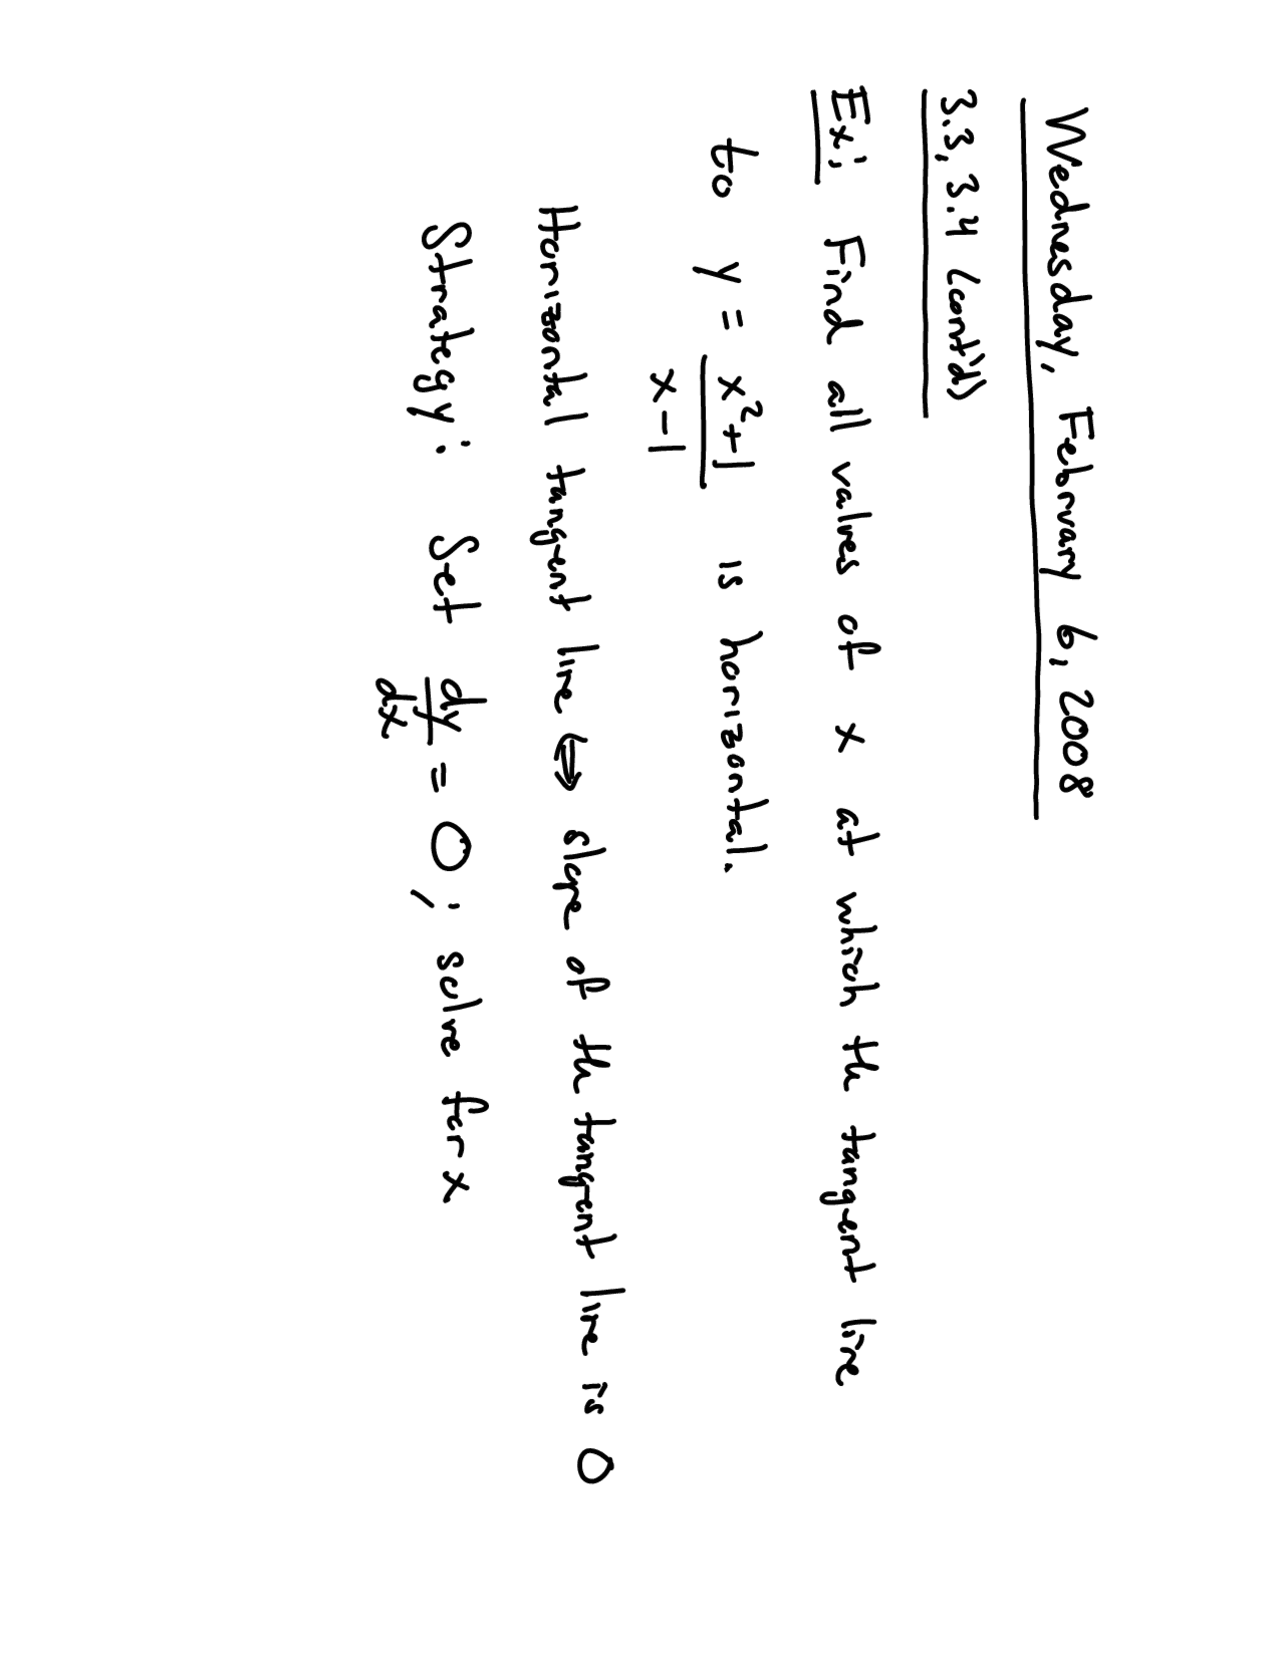 Wednesday, February 6, 2008
3.3, 3.4 (cont'd)
Ex: Find all values of x at which the tangent line
to y = x²+1 / x-1 is horizontal.
Horizontal tangent line ⇔ slope of the tangent line is 0
Strategy: Set dy/dx = 0; solve for x